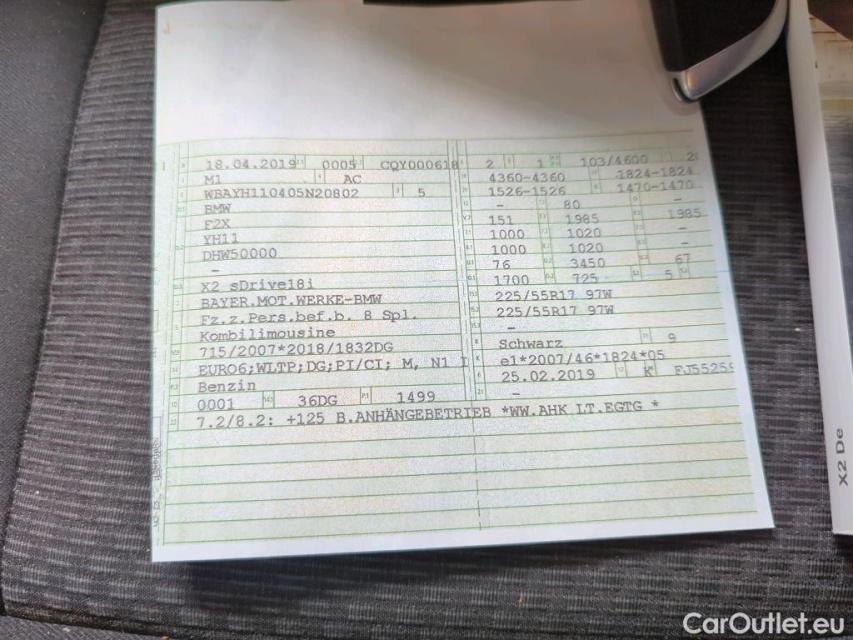 18.04.2019 0005 CQY000618 2 1 103/4600
M1 AC 4360-4360 1824-1824
WBAYH110405N20802 5 1526-1526 1470-1470
BMW - 80 -
F2X 151 1985 1985
YH11 1000 1020 -
DHW50000 1000 1020 -
- 76 3450 67
X2 sDrive18i 1700 725 5
BAYER.MOT.WERKE-BMW 225/55R17 97W
Fz.z.Pers.bef.b. 8 Spl. 225/55R17 97W
Kombilimousine -
715/2007*2018/1832DG Schwarz 9
EURO6;WLTP;DG;PI/CI; M, N1 I e1*2007/46*1824*05
Benzin 25.02.2019 K FJ55259
0001 36DG 1499 -
7.2/8.2: +125 B.ANHÄNGEBETRIEB *WW.AHK LT.EGTG *
X2 De
CarOutlet.eu